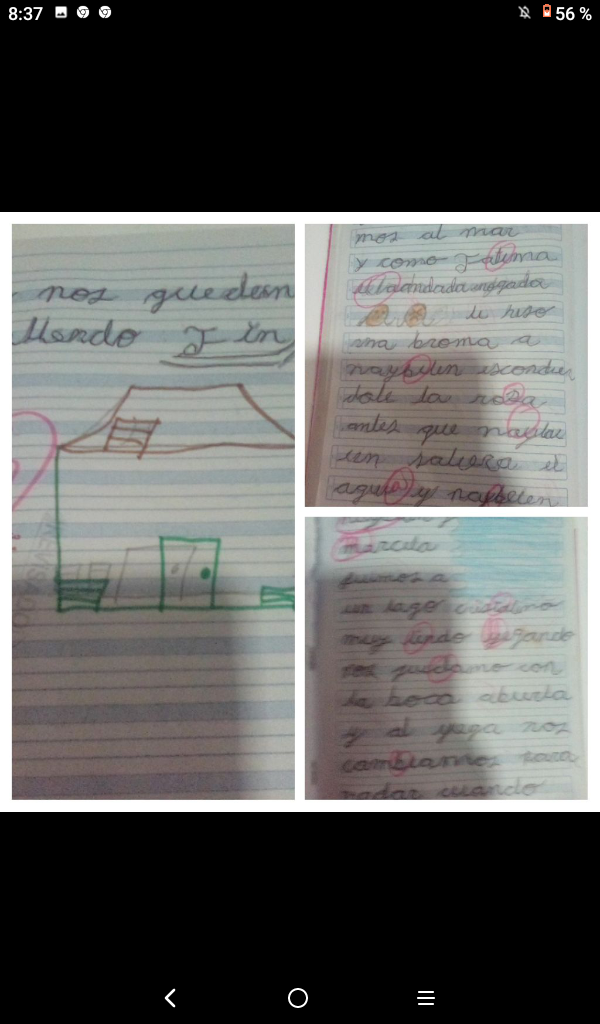 8:37
56 %
nos queden
llendo Fin
REVISADO
mos al mar
y como Fatima
nogada
le hiso
una broma a
naybelen escondien
dole la ropa
antes que naybe
len saliera el
agua y naybelen
marcela
fuimos a
un lago cristalino
muy lindo yegando
nos quedamo con
la boca abierta
y al yega nos
cambiamos para
nadar cuando